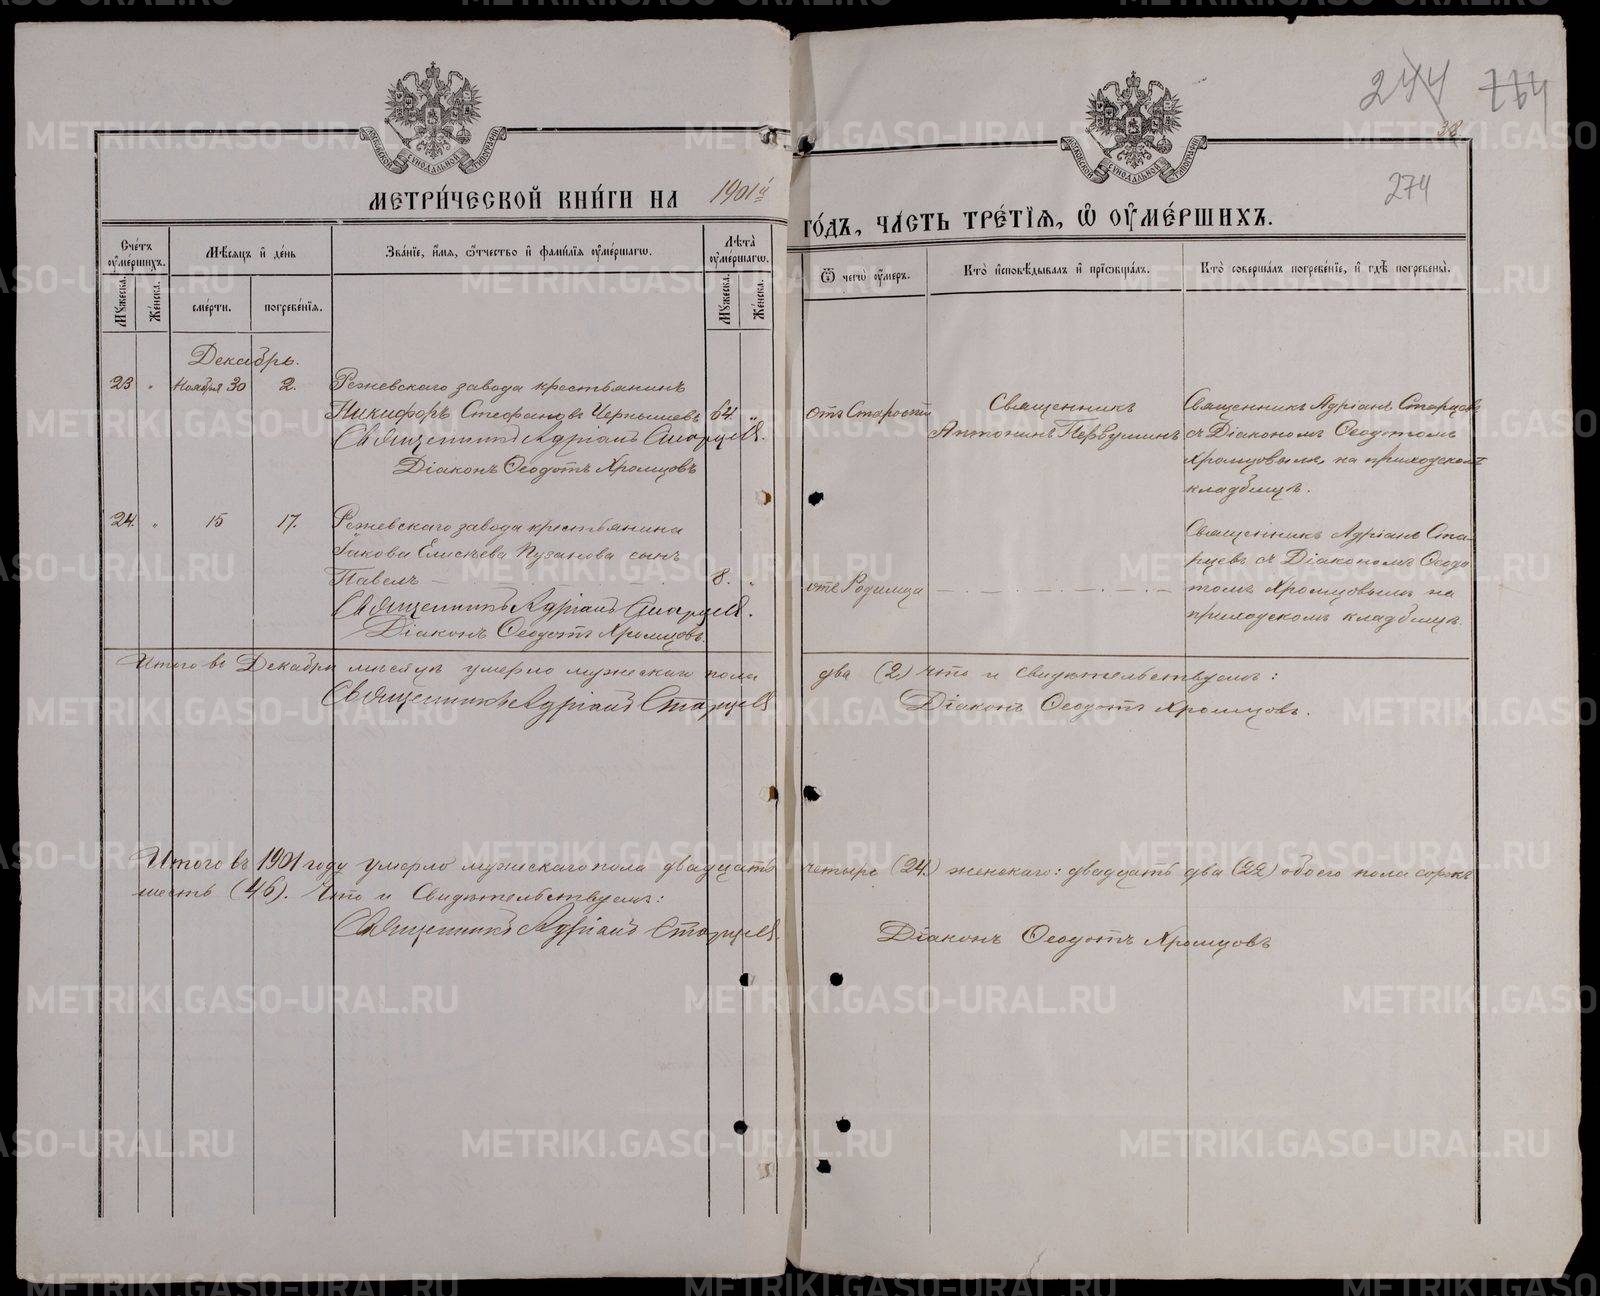 244 764
38
274
МОСКОВСКОЙ СѴНОДАЛЬНОЙ ТИПОГРАФІИ
МОСКОВСКОЙ СѴНОДАЛЬНОЙ ТИПОГРАФІИ
МЕТРИ́ЧЕСКОЙ КНИ́ГИ НА 1901й
ГО́ДЪ, ЧА́СТЬ ТРЕ́ТІѦ, Ѡ ОУМЕ́РШИХЪ.
Счетъ оумершихъ.
Мужеска. Женска.
Мѣсяцъ и день
смерти. погребенія.
Званіе, имя, отчество и фамилія оумершагѡ.
Лѣта оумершагѡ.
Мужеска. Женска.
Ѿ чегѡ оумеръ.
Кто исповѣдывалъ и пріѡбщалъ.
Кто совершалъ погребеніе, и гдѣ погребены.
Декабрь.
23 " Ноября 30 2. Режевскаго завода крестьянинъ
Никифоръ Стефановъ Чернышевъ 64 "
Священникъ Адріанъ Старцевъ.
Діаконъ Ѳеодотъ Хромцовъ
отъ Старости
Священникъ
Антонинъ Первушинъ
Священникъ Адріанъ Старцевъ
съ Діакономъ Ѳеодотомъ
Хромцовымъ, на приходскомъ
кладбищѣ.
24. " 15 17. Режевскаго завода крестьянина
Іакова Елисѣева Пузанова сынъ
Павелъ 8. "
Священникъ Адріанъ Старцевъ.
Діаконъ Ѳеодотъ Хромцовъ.
отъ Родимца
Священникъ Адріанъ Стар-
цевъ съ Діакономъ Ѳеодо-
томъ Хромцовымъ на
приходскомъ кладбищѣ.
Итого въ Декабрѣ мѣсяцѣ умерло мужескаго пола два (2) что и свидѣтельствуемъ:
Священникъ Адріанъ Старцевъ Діаконъ Ѳеодотъ Хромцовъ.
Итого въ 1901 году умерло мужескаго пола двадцать четыре (24.) женскаго: двадцать два (22) обоего пола сорокъ
шесть (46). Что и Свидѣтельствуемъ:
Священникъ Адріанъ Старцевъ. Діаконъ Ѳеодотъ Хромцовъ
METRIKI.GASO-URAL.RU